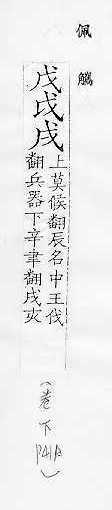 佩觿
戊戉戌
上莫候翻辰名中王伐
翻兵器下辛聿翻戌亥
(卷下 P41A)